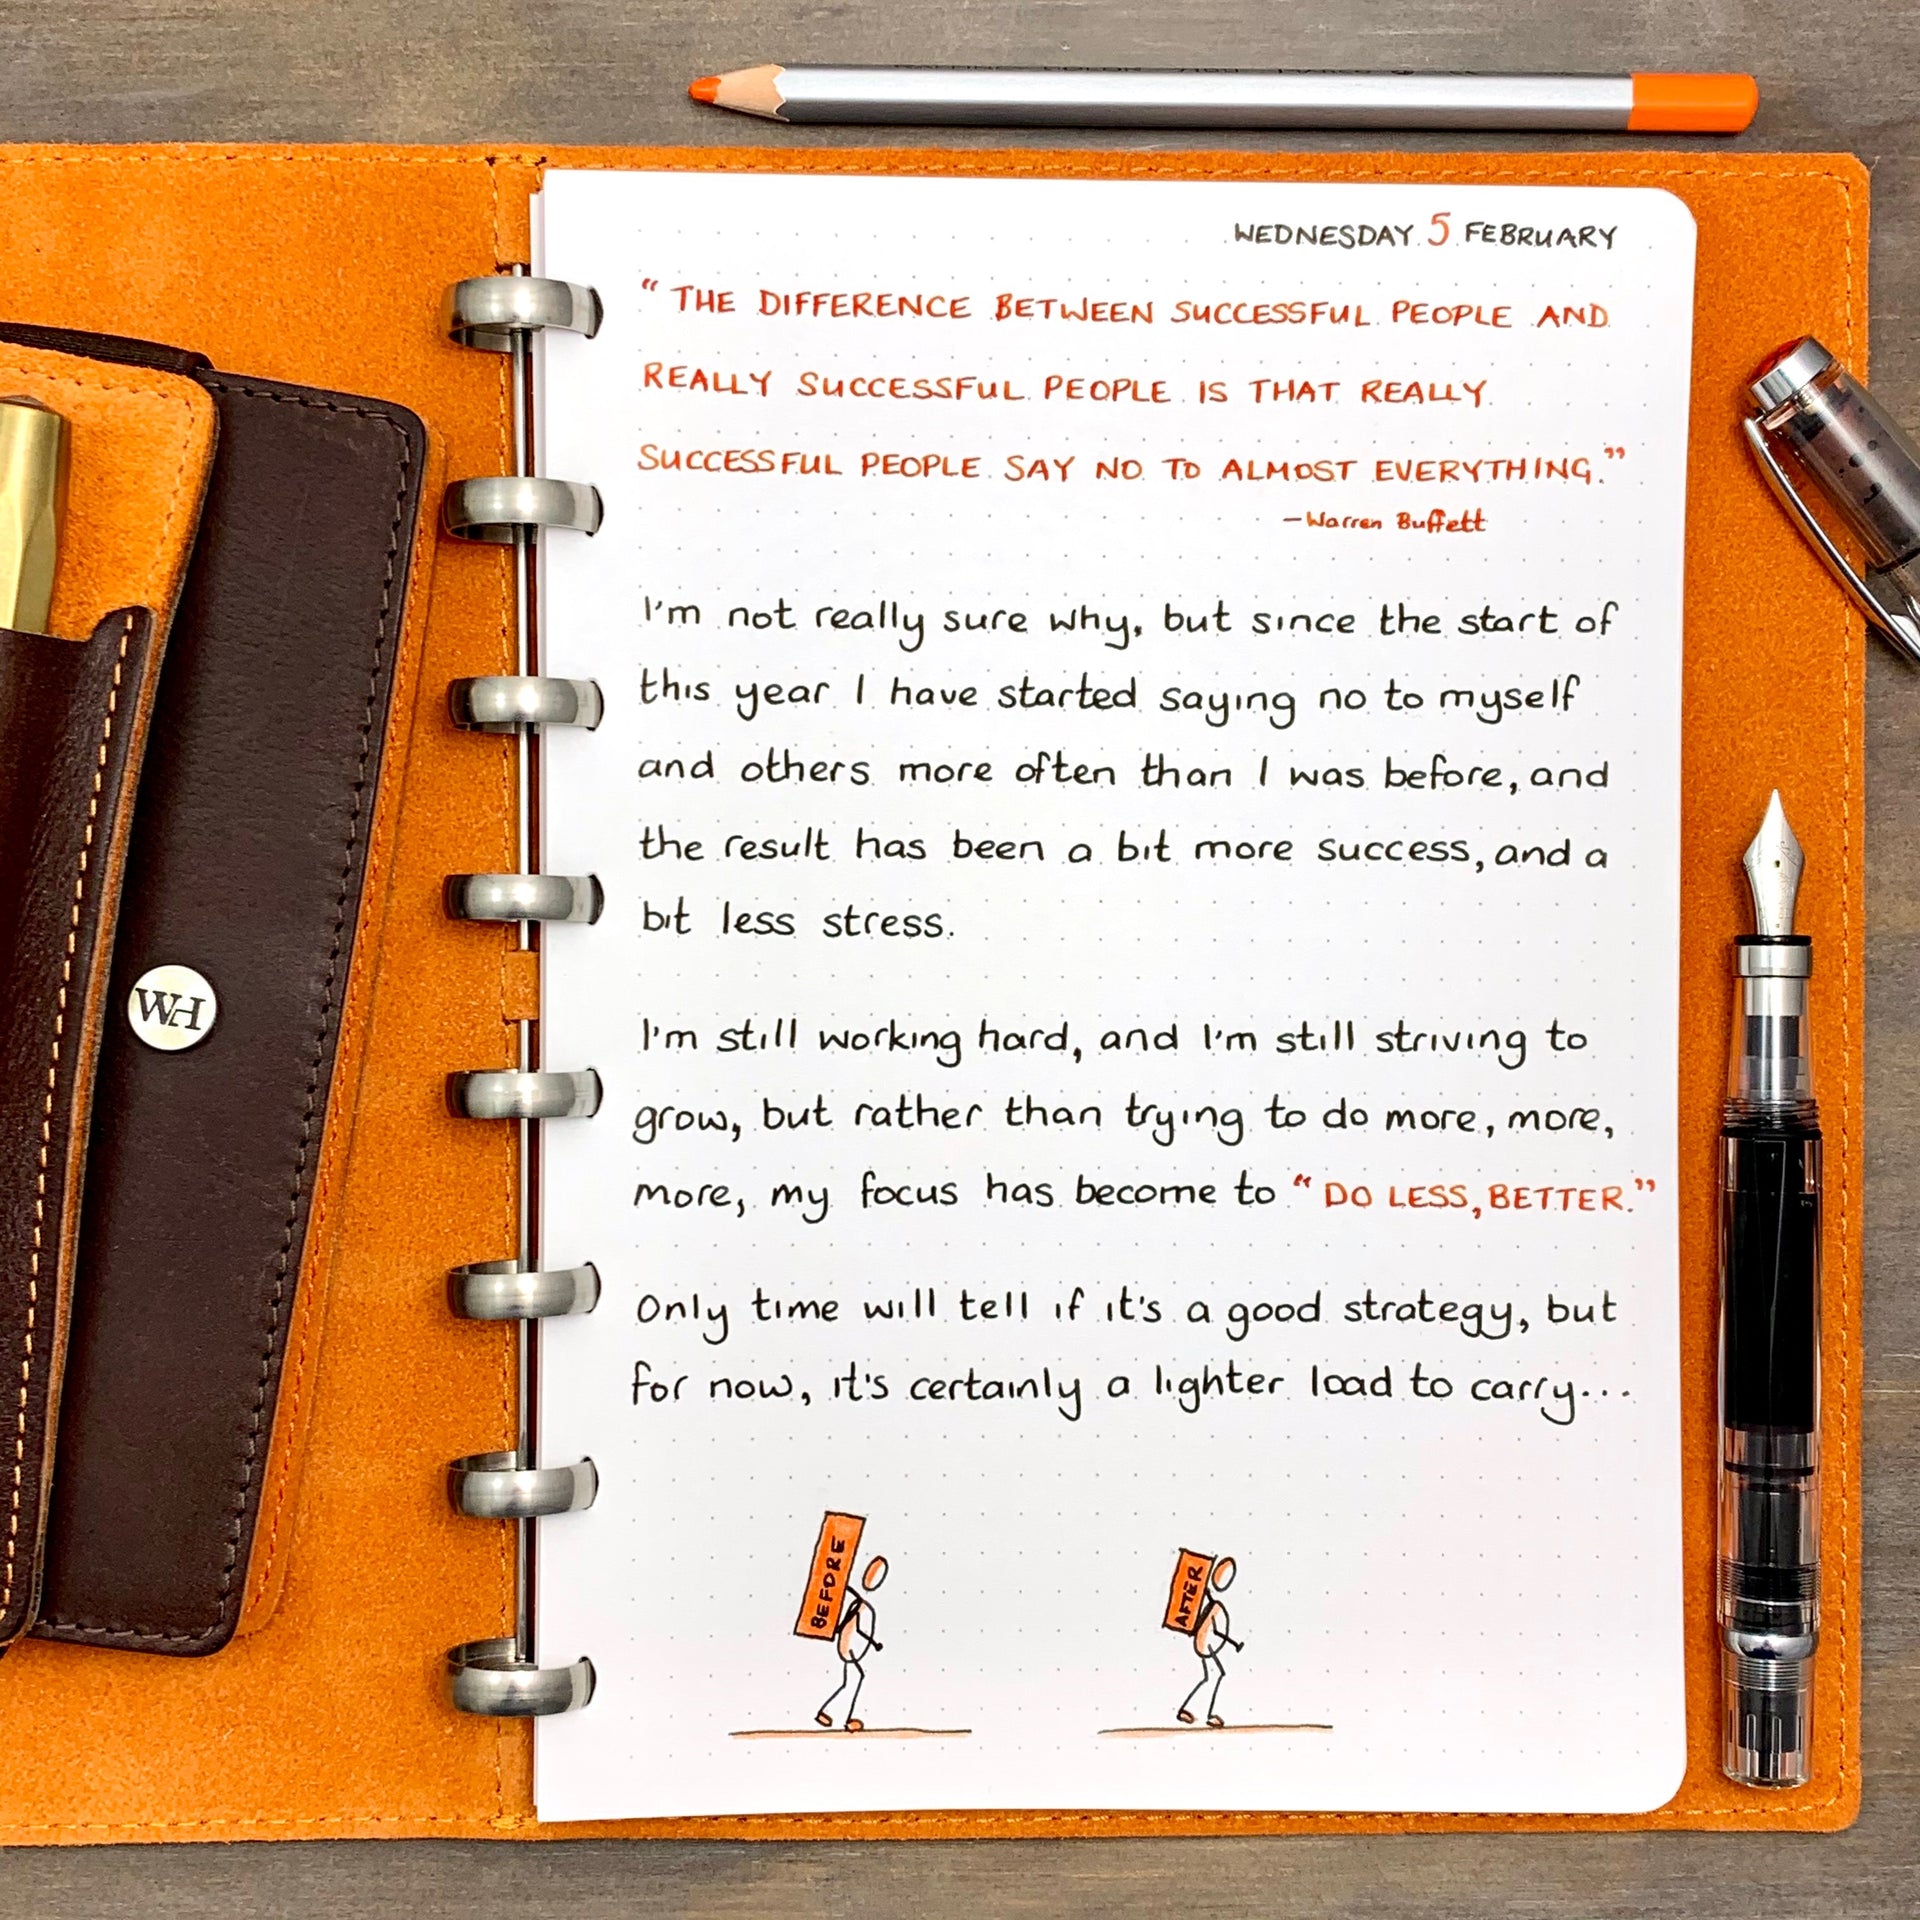 WEDNESDAY 5 FEBRUARY
“THE DIFFERENCE BETWEEN SUCCESSFUL PEOPLE AND
REALLY SUCCESSFUL PEOPLE IS THAT REALLY
SUCCESSFUL PEOPLE SAY NO TO ALMOST EVERYTHING.”
–Warren Buffett
I'm not really sure why, but since the start of
this year I have started saying no to myself
and others more often than I was before, and
the result has been a bit more success, and a
bit less stress.
I'm still working hard, and I'm still striving to
grow, but rather than trying to do more, more,
more, my focus has become to “DO LESS, BETTER.”
Only time will tell if it's a good strategy, but
for now, it's certainly a lighter load to carry...
BEFORE
AFTER
WH